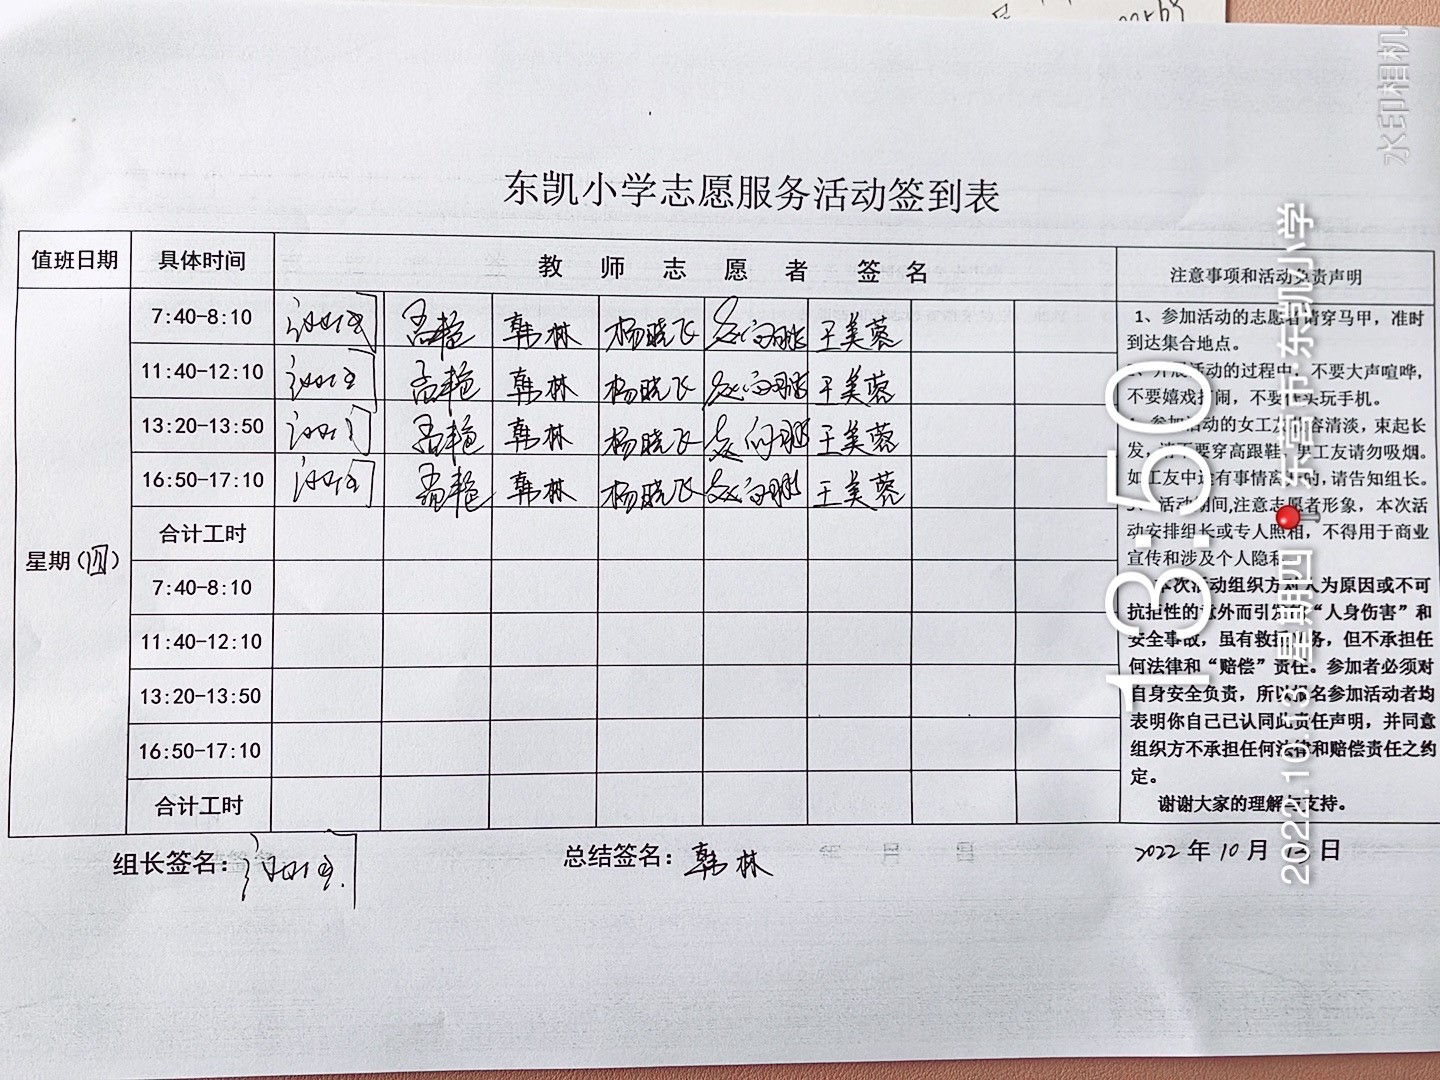 水印相机
东凯小学志愿服务活动签到表
值班日期 具体时间 教师志愿者签名 注意事项和活动免责声明
7:40-8:10 孟艳 韩林 杨晓飞 王美蓉
11:40-12:10 孟艳 韩林 杨晓飞 王美蓉
13:20-13:50 孟艳 韩林 杨晓飞 王美蓉
16:50-17:10 孟艳 韩林 杨晓飞 王美蓉
合计工时
星期(四)
7:40-8:10
11:40-12:10
13:20-13:50
16:50-17:10
合计工时
1、参加活动的志愿者请穿马甲，准时
到达集合地点。
开展活动的过程中，不要大声喧哗，
不要嬉戏打闹，不要低头玩手机。
参加活动的女工友妆容清淡，束起长
发，请不要穿高跟鞋，男工友请勿吸烟。
如工友中途有事情离开时,请告知组长。
活动期间,注意志愿者形象，本次活
动安排组长或专人照相，不得用于商业
宣传和涉及个人隐私。
本次活动组织方对人为原因或不可
抗拒性的意外而引发的“人身伤害”和
安全事故，虽有救护义务，但不承担任
何法律和“赔偿”责任。参加者必须对
自身安全负责，所以报名参加活动者均
表明你自己已认同此责任声明，并同意
组织方不承担任何法律和赔偿责任之约
定。
谢谢大家的理解与支持。
组长签名： 总结签名：韩林 2022年10月13日
13:50
2022.10.13 星期四 东营市·东凯小学